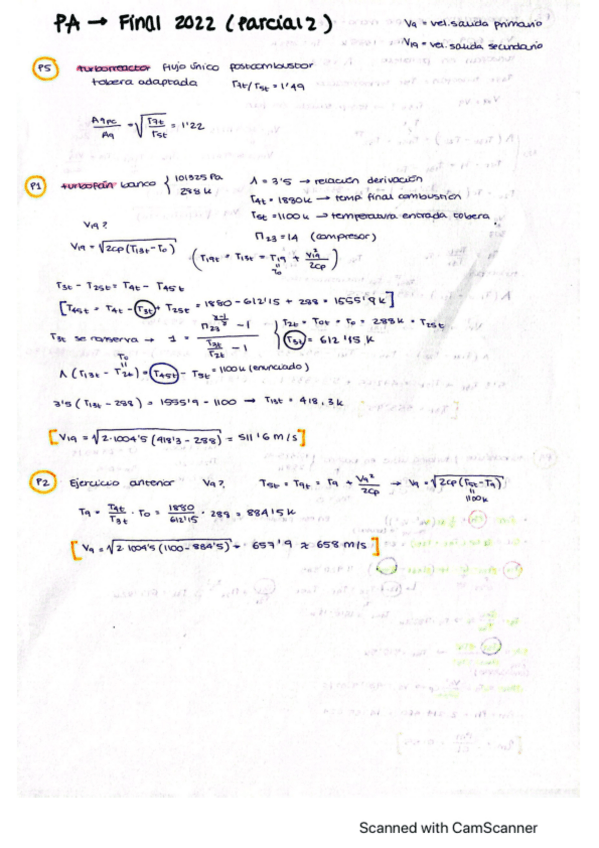 PA → Final 2022 (Parcial 2)
V9 = vel. salida primario
V19 = vel. salida secundario
P5 turborreactor flujo único postcombustor
tobera adaptada T7t/T5t = 1'49
A9PC/A9 = √(T7t/T5t) = 1'22
P1 turbofán banco { 101325 Pa
288 K
Λ = 3'5 → relación derivación
T4t = 1880K → temp final combustión
T5t = 1100K → temperatura entrada tobera
Π23 = 14 (compresor)
V19?
V19 = √(2cp(T13t - T0)) (T19t = T13t = T19 + V19²/2cp)
T0
T3t - T25t = T4t - T45t
[T45t = T4t - T3t + T25t = 1880 - 612'15 + 288 = 1555'9K]
T3t se conserva → 1 = (Π23^((γ-1)/γ) - 1) / (T3t/T2t - 1) } T2t = T0t = T0 = 288K = T25t
T3t = 612'15 K
Λ(T13t - T2t) = T45t - T5t = 1100K (enunciado)
T0
3'5 (T13t - 288) = 1555'9 - 1100 → T13t = 418,3K
[V19 = √(2·1004'5 (418'3 - 288)) = 511'6 m/s]
P2 Ejercicio anterior V9? T5t = T9t = T9 + V9²/2cp → V9 = √(2cp(T9t - T9))
1100K
T9 = T4t/T3t · T0 = 1880/612'15 · 288 = 884'5K
[V9 = √(2·1004'5 (1100 - 884'5)) = 657'9 ≈ 658 m/s]
Scanned with CamScanner